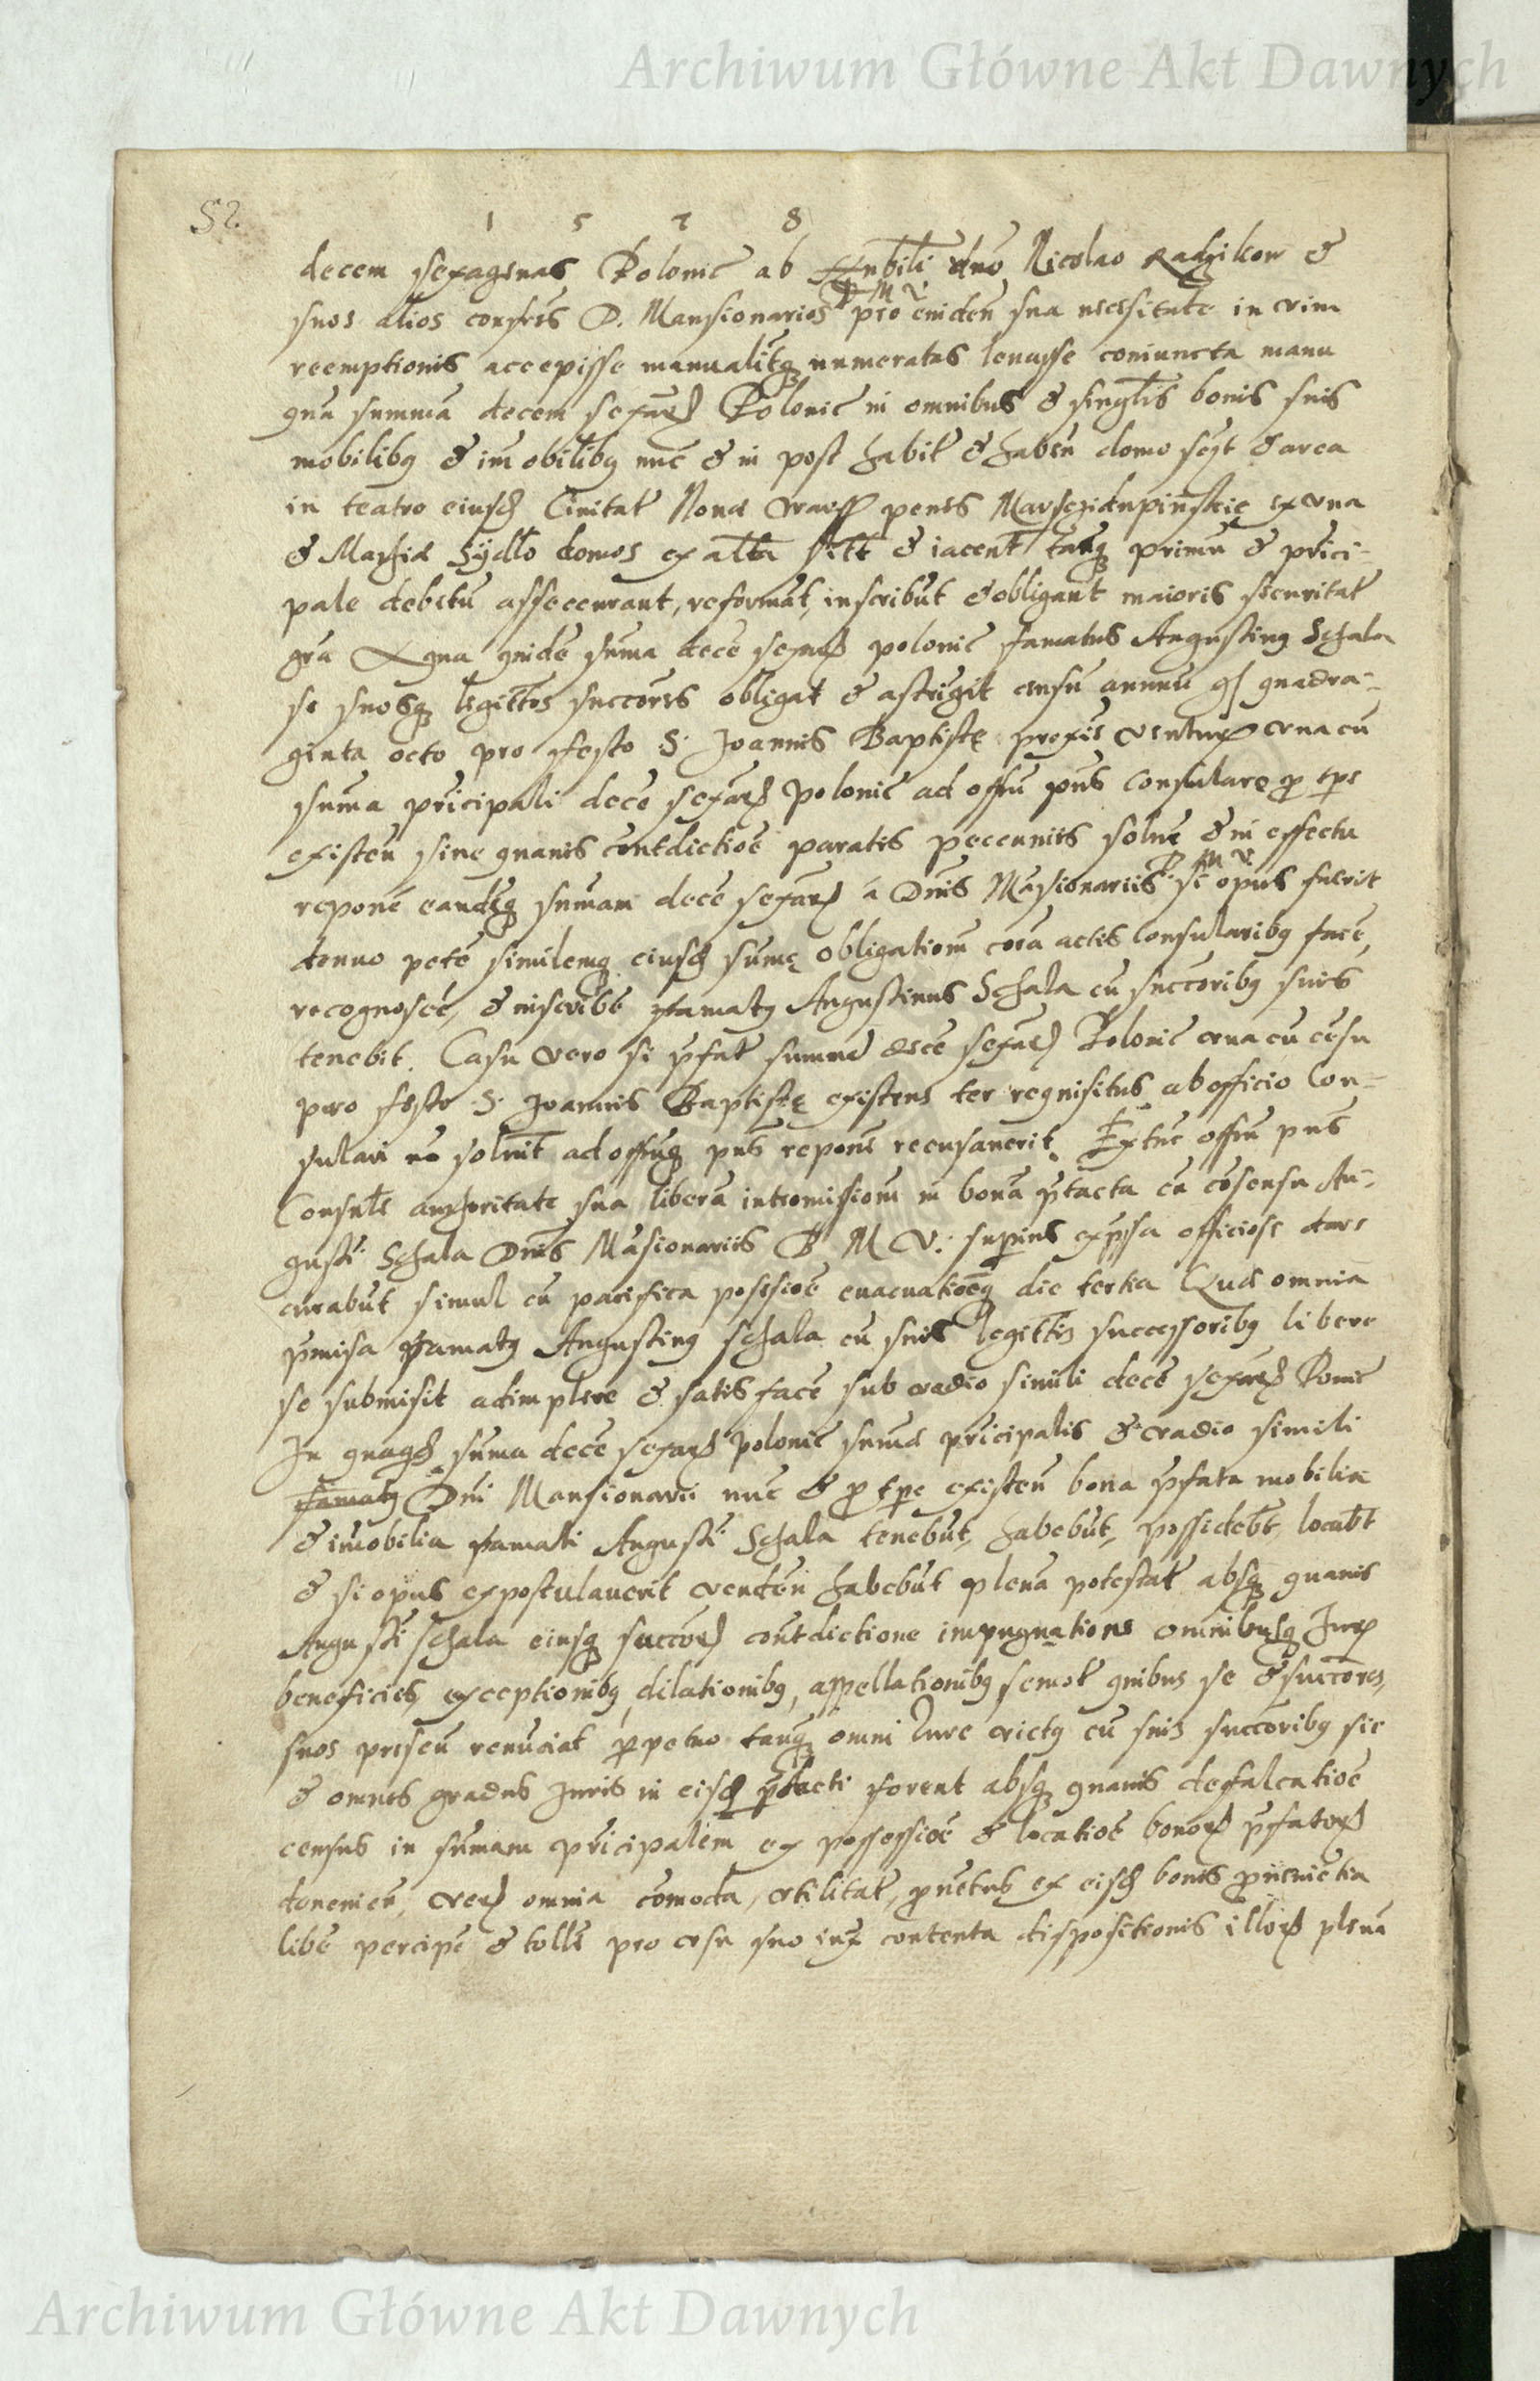 Archiwum Główne Akt Dawnych
52
1 5 7 8
decem sexagenas Polonic ab Hnobili dno Nicolao Radzikow &
suos alios confres D. Mansionarios B M V pro eviden sua necessitate in vim
reemptionis accepisse manualitq numeratas levasse coniuncta manu
qua summa decem sexar Polonic in omnibus & singlis bonis suis
mobilibq & im obilibq nuc & in post habit & haben domo seyt & area
in teatro eiusd Civitat Nova Warss penes exvna
& Mathia Sydlo domos ex alta sitt & iacent tanq primu & prici-
pale debitu assecurant, reformat, inscribut & obligant maioris securitat
gra A qua quide suma dece sexar polonic famatus Augustinq Schala
se suosq legittos succores obligat & astrigit censu annuu gs quadra-
ginta octo pro festo S. Joannis Baptiste proxie ventur vna cu
suma pricipali dece sexar Polonic ad offiu pns Consulare p tpe
existen sine quavis contdictioe paratis pecuniis solve & in effectu
repone eandeq sumam dece sexar a Dnis Masionariis B M V si opus fuerit
denuo pete similemq eiusd sume obligationem cora actis Consularibq face,
recognosce, & inscribe famatq Augustinus Schala cu succoribq suis
tenebit. Casu vero si pfat summa dece sexar Polonic vna cu cesu
pro festo S. Joannis Baptiste existens ter requisitus ab officio Con-
sulari no solvit ad offiuq pns repone recusaverit. Extuc offiu pns
Consule authoritate sua libera intromissionem in bona ptacta cu cosensu Au-
gusti Schala Dnis Masionariis B M V. superius expssa officiose dare
curabut simul cu pacifica possesioe evacuatioeq die tertia Qua omnia
pmisa famatq Augustinq Schala cu suis legittis successoribq libere
se submisit adimplere & satis face sub vadio simili dece sexar Polonic
In quaqd suma dece sexar polonic suma pricipalis & vadio simili
famatq Dni Mansionarii nuc & p tpe existen bona pfata mobilia
& imobilia famati Augusti Schala tenebut, habebut, possidebt, locabt
& si opus expostulaverit venden habebut plena potestat absq quavis
Augusti Schala eiusq succor contdictione impugnatione omnibusq Jur
beneficies, exceptionibq, dilationibq, appellationibq semot quibus se & succores,
suos presen renuciat ppetuo tanq omni Iure victq cu suis succoribq sic
& omnes gradus Juris in eisd ptacti forent absq quavis defalcatioe
census in sumam pricipalem ex possessioe & locatioe bonor pfator
donenien, ver omnia comoda, vtilitat, pvetus ex eisd bonis pvenietia
libe percipe & tolle pro vsu suo iux contenta dispositionis illor plena
Archiwum Główne Akt Dawnych